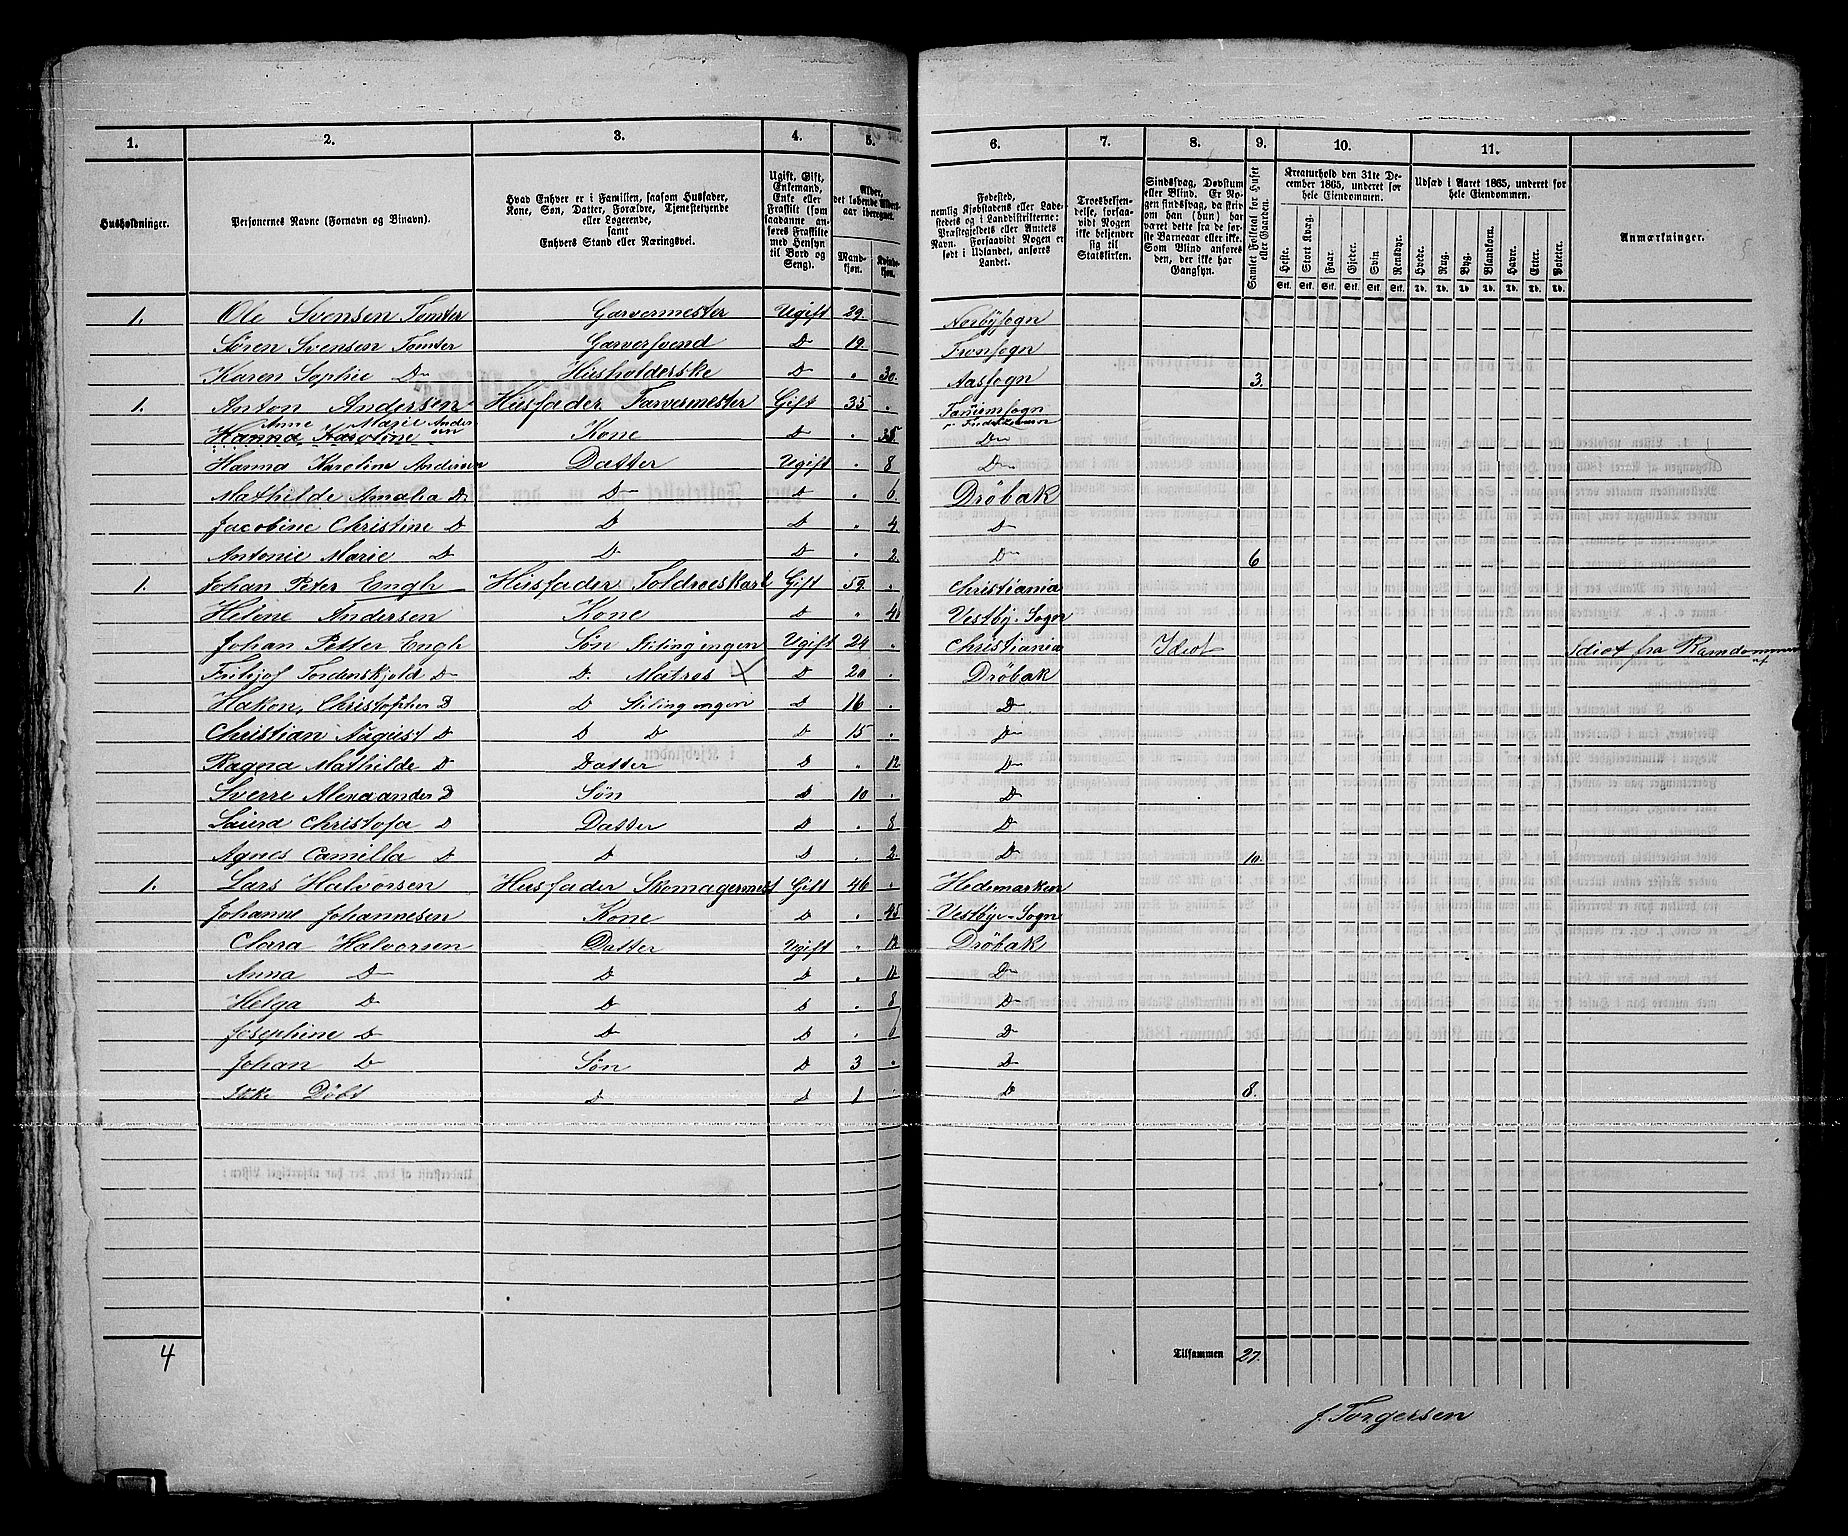 1.
2.
3.
4.
5.
6.
7.
8.
9.
10.
11.
Husholdninger.
Personernes Navne (Fornavn og Binavn).
Hvad Enhver er i Familien, saasom Husfader,
Kone, Søn, Datter, Forældre, Tjenestetyende
eller Logerende,
samt
Enhvers Stand eller Næringsvei.
Ugift, Gift,
Enkemand,
Enke eller
Fraskilt (som
saadanne an-
føres Fraskilte
med Hensyn
til Bord og
Seng).
Alder,
det løbende Alders-
aar iberegnet.
Mand-
kjøn.
Kvinde-
kjøn.
Fødested,
nemlig Kjøbstadens eller Lade-
stedets og i Landdistrikterne:
Præstegjeldets eller Amtets
Navn. Forsaavidt Nogen er
født i Udlandet, anføres
Landet.
Troesbekjen-
delse, forsaa-
vidt Nogen
ikke bekjender
sig til
Statskirken.
Sindssvag, Døvstum
eller Blind. Er No-
gen sindssvag, da skrives
om han (hun) har
været dette fra de før-
ste Barneaar eller ikke.
Som Blind anføres
den, der ikke har
Gangsyn.
Samlet Folketal for Huset
eller Gaarden.
Kreaturhold den 31te De-
cember 1865, underet for
hele Eiendommen.
Heste.
Stort Kvæg.
Faar.
Gjeder.
Svin
Rensdyr.
Udsæd i Aaret 1865, underet for
hele Eiendommen.
Hvede.
Rug.
Byg.
Blandkorn.
Havre.
Erter.
Poteter.
Stk. Stk. Stk. Stk. Stk. Stk. Td. Td. Td. Td. Td. Td. Td.
Anmærkninger.
1. Ole Svensen Tomter Garvermester Ugift 29. Norbysogn
Søren Svensen Tomter Garversvend D 19 Fronsogn
Karen Sophie D Husholderske D " 30. Aassogn 3.
1. Anton Andersen Husfader Farvermester Gift 35 "
Anne Marie Andersen
Hanna Karoline Kone D " 35 D
Hanna Karoline Andersen Datter Ugift " 8 D
Mathilde Amalia D D D " 6. Drøbak
Jacobine Christine D D D " 4. D
Antonie Marie D D D " 2. D 6
1. Johan Peter Engh Husfader Toldroeskarl Gift 59. " Christiania
Helene Andersen Kone D " 40 Vestby Sogn
Johan Petter Engh Søn Stilling ingen Ugift 24 " Christiania Idiot Idiot fra Barndommen
af
Fritjof Tordenskjold D D. Matros X D 20 . Drøbak
Haken Christopher D D Stiling ingen D 16 . D
Christian August D D D D 15 . D
Ragna Mathilde D Datter D " 12 D
Sverre Alexaander D Søn D 10 . D
Laura Christofa D Datter D " 8 D
Agnes Camilla D D D . 2. D 10.
1. Lars Halvorsen Husfader Skomagermest Gift 46 " Hedemarken
Johanne Johannesen Kone D " 45 Vestby Sogn
Clara Halvorsen Datter Ugift " Drøbak
Anna D D D " D
Helga D D D " 8 D
Josephine D D D . D
Johan D Søn D 3 " D
Ikke Døbt D D 1 D 8.
4
Tilsammen 27.
J. Torgersen